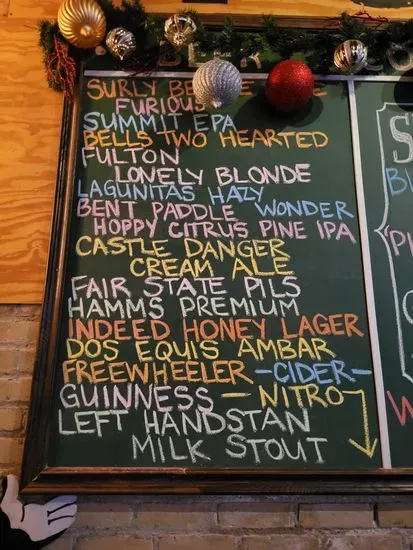 BEER
SURLY
FURIOUS
SUMMIT EPA
BELLS TWO HEARTED
FULTON
LONELY BLONDE
LAGUNITAS HAZY
BENT PADDLE WONDER
HOPPY CITRUS PINE IPA
CASTLE DANGER
CREAM ALE
FAIR STATE PILS
HAMMS PREMIUM
INDEED HONEY LAGER
DOS EQUIS AMBAR
FREEWHEELER -CIDER-
GUINNESS - NITRO
LEFT HANDSTAN
MILK STOUT